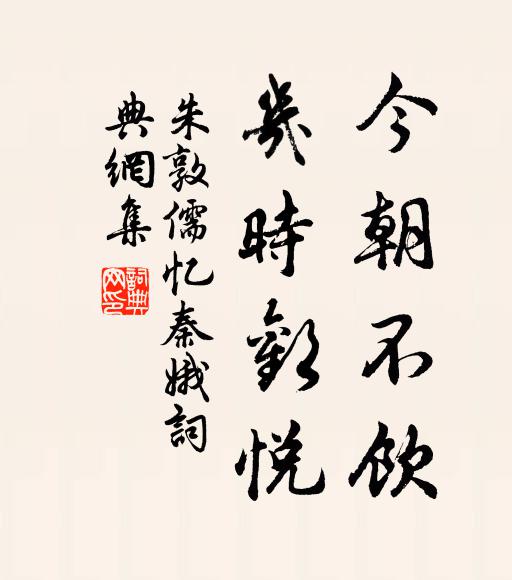 今朝不飲
幾時歡悅
朱敦儒忆秦娥詞
典網集
詞典
网印